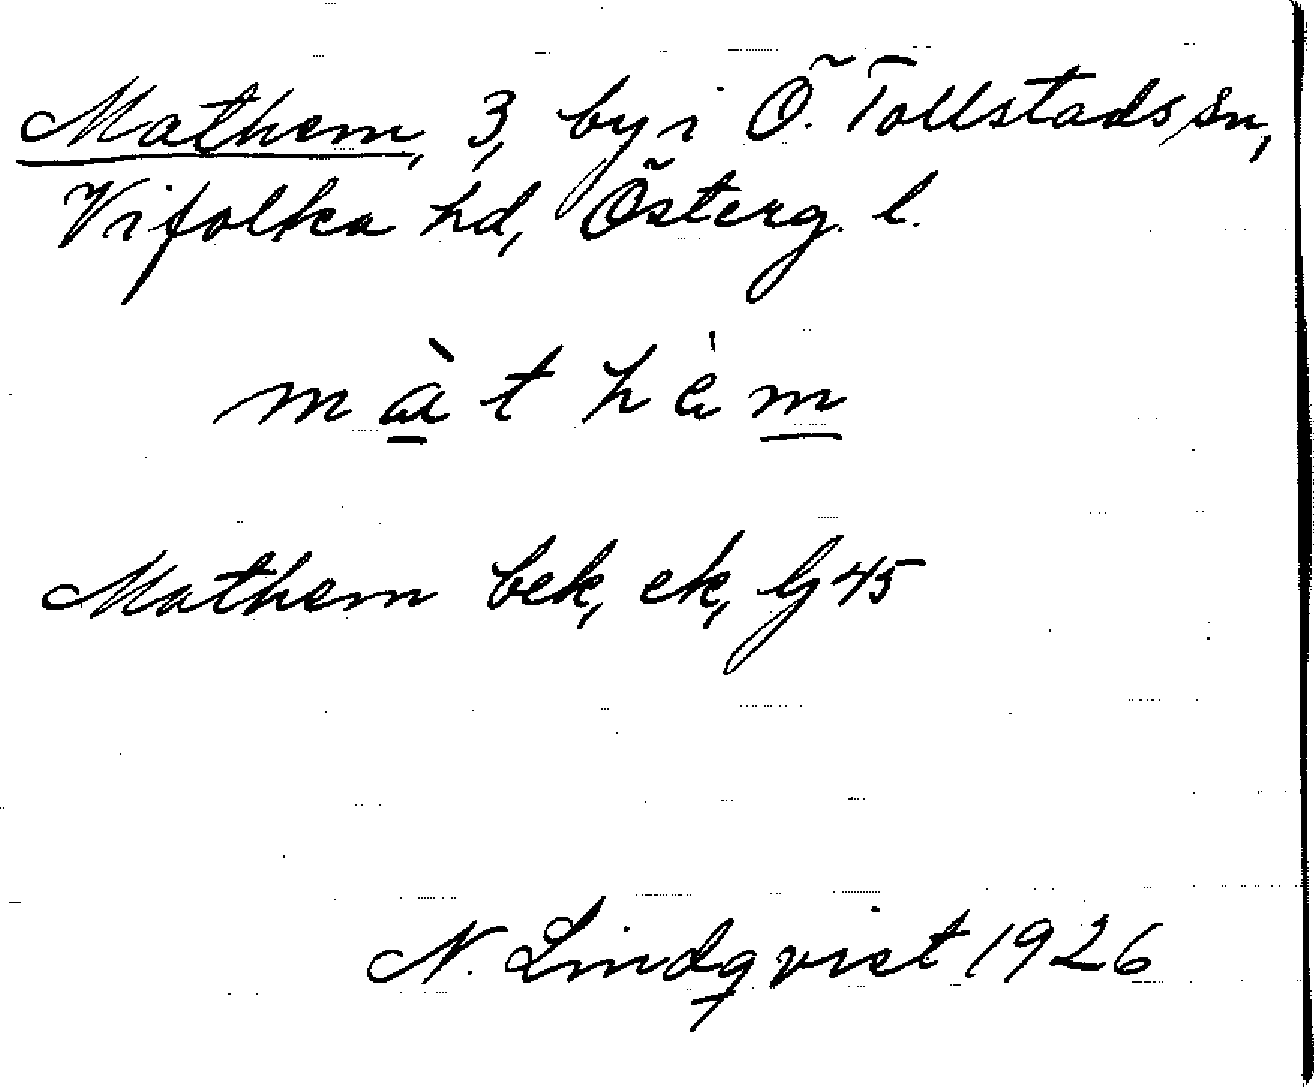 Mathem, 3, by i Ö. Tollstads sn,
Vifolka hd, Österg. l.
màt hèm
Mathem bek, ek, Gj 45
N. Lindqvist 1926